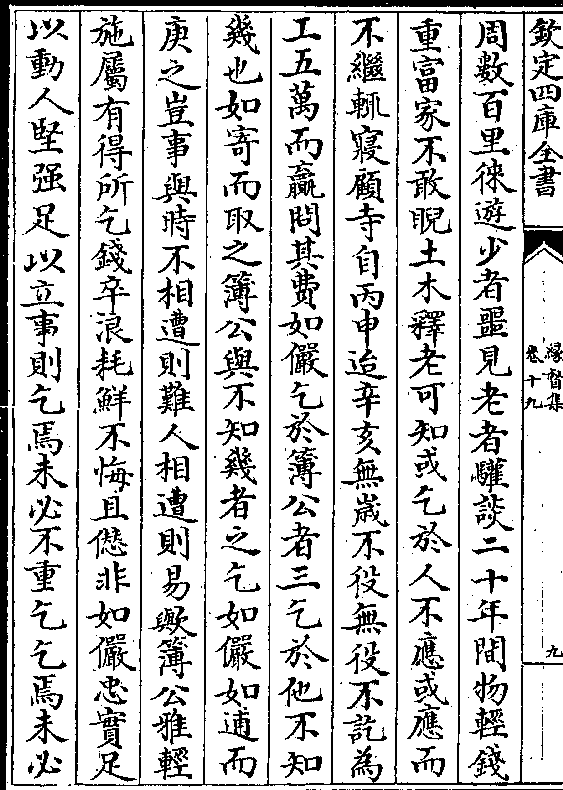 欽定四庫全書
緣督集
卷十九
九
周數百里徠遊少者噩見老者驩談二十年間物輕錢
重富家不敢睨土木釋老可知或乞於人不應或應而
不繼輒寢顧寺自丙申迨辛亥無歳不役無役不訖為
工五萬而羸問其費如儼乞於簿公者三乞於他不知
幾也如寄而取之簿公與不知幾者之乞如儼如逋而
庚之豈事與時不相遭則難人相遭則易歟簿公雅輕
施屬有得所乞錢卒浪耗鮮不悔且僽非如儼忠實足
以動人堅强足以立事則乞焉未必不重乞乞焉未必